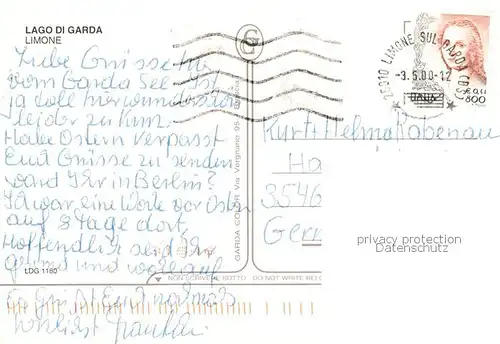 LAGO DI GARDA
LIMONE
Liebe Grüsse
vom Garda See. Ist
ja toll hier
leider zu kurz.
Habe Ostern verpasst
Euch Grüsse zu senden
ward Ihr in Berlin?
Ich war eine Woche vor Ostern
auf 8 Tage dort.
Hoffendlich seid Ihr
gesund und wohlauf
Es grüsst Euch nochmals
herzlichst
LDG 1160
GARDA COLOR Via Vergnano 95
NON SCRIVERE SOTTO DO NOT WRITE BELOW
G
25010 LIMONE SUL GARDA (BS)
-3.5.00-12
ITALIA
€ 0,41
800
Kurt + Helma Rabenau
Ha
3546
Ger
privacy protection
Datenschutz